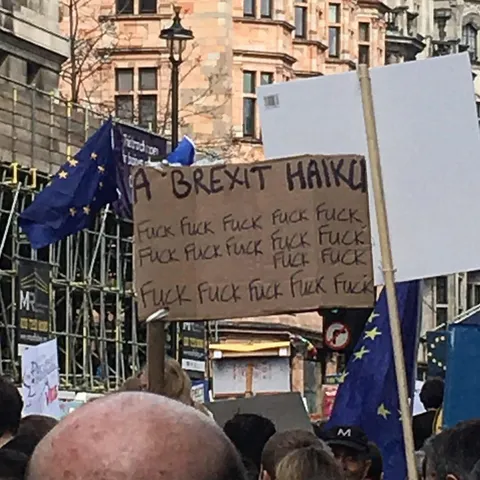 A BREXIT HAIKU
Fuck Fuck Fuck Fuck Fuck
Fuck Fuck Fuck Fuck Fuck
Fuck Fuck
Fuck Fuck Fuck Fuck Fuck
MR
M